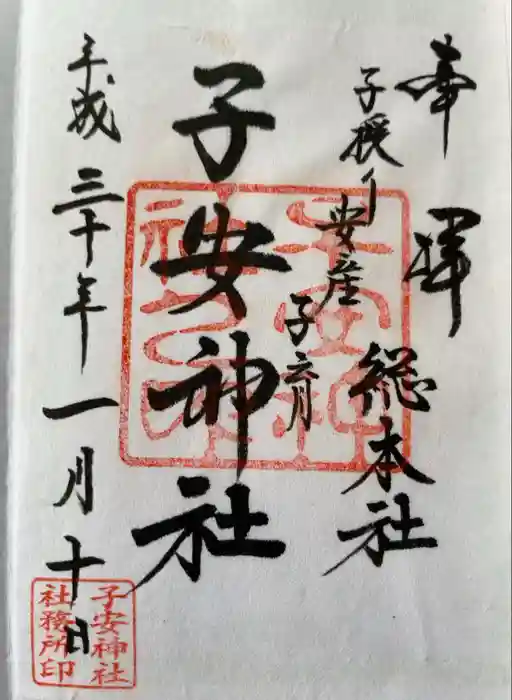 奉拝
子授り
安産
子育
総本社
子安神社
平成三十年一月十日
子安神社
社務所印